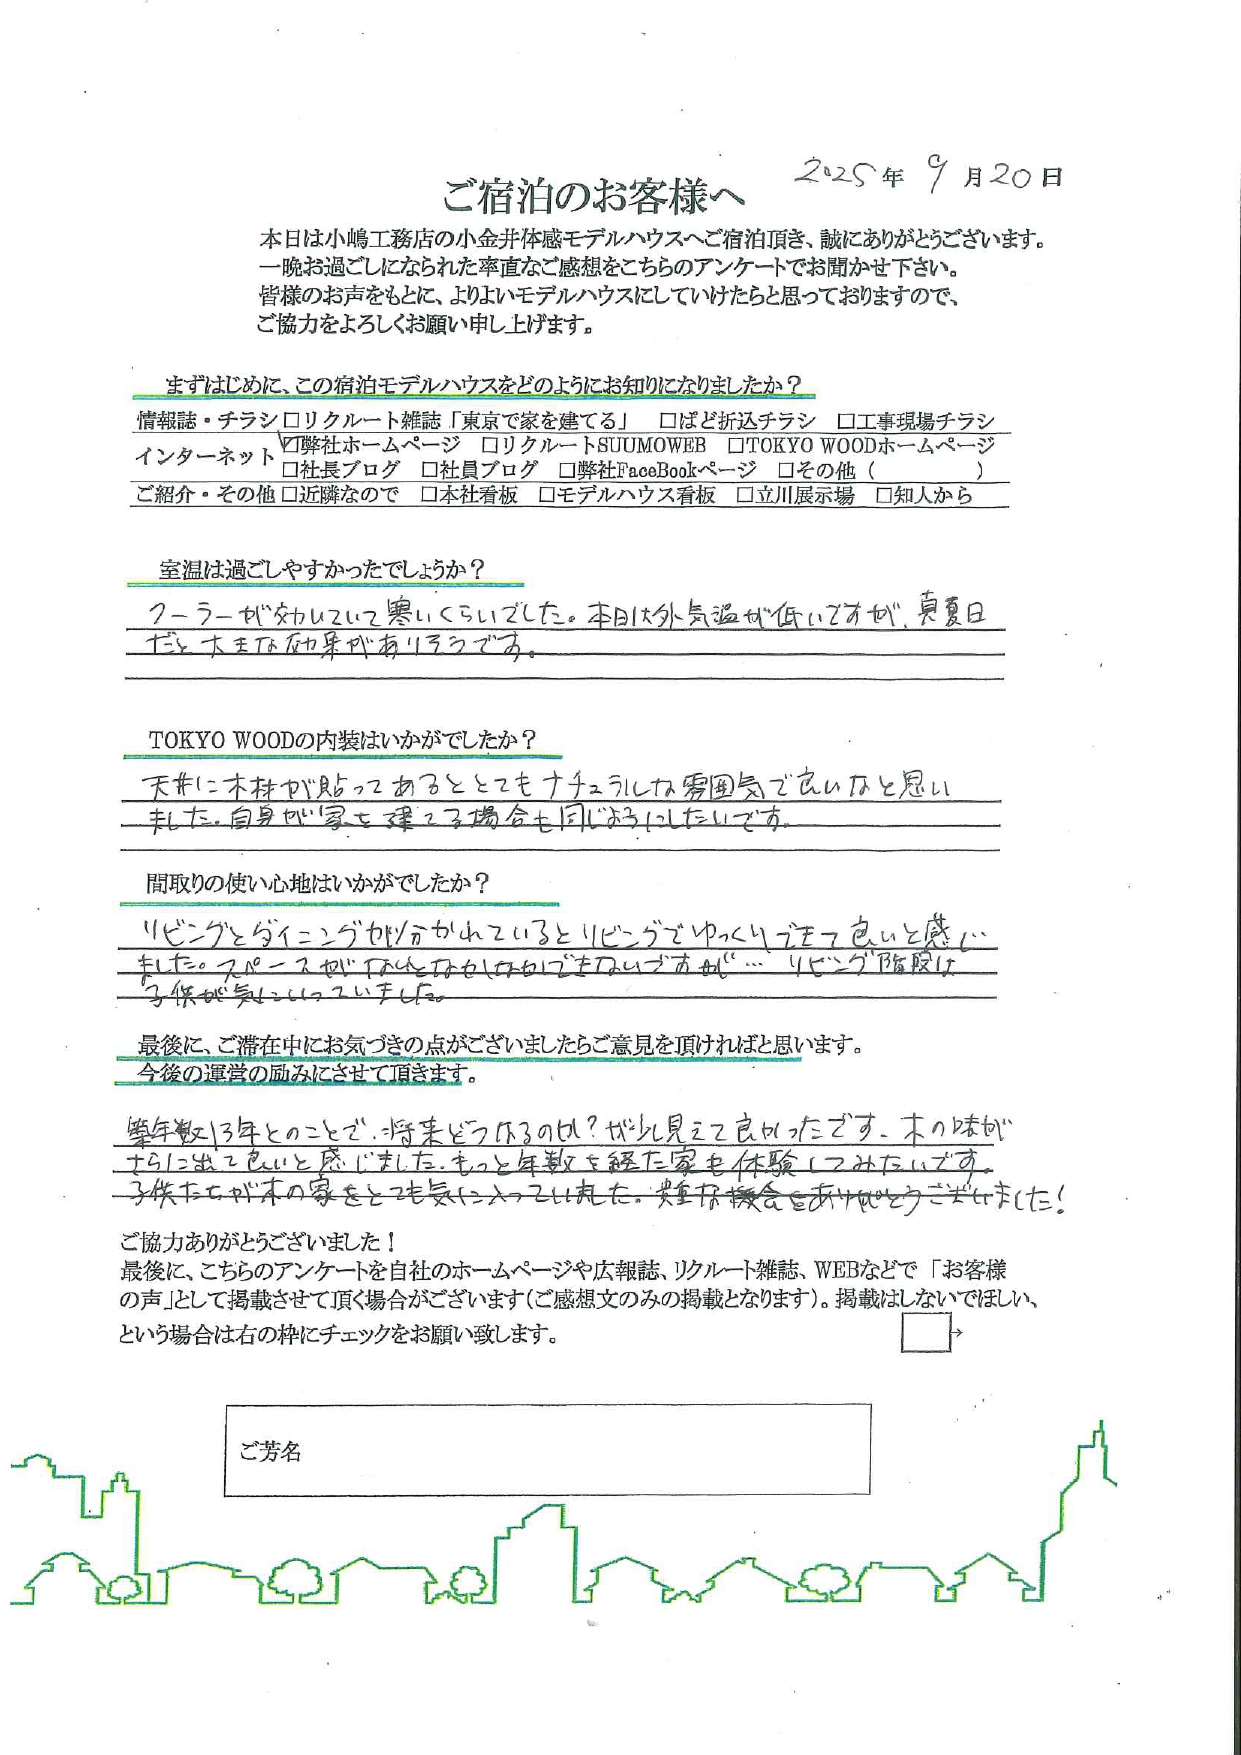 2025年 9月20日
ご宿泊のお客様へ
本日は小嶋工務店の小金井体感モデルハウスへご宿泊頂き、誠にありがとうございます。
一晩お過ごしになられた率直なご感想をこちらのアンケートでお聞かせ下さい。
皆様のお声をもとに、よりよいモデルハウスにしていけたらと思っておりますので、
ご協力をよろしくお願い申し上げます。
まずはじめに、この宿泊モデルハウスをどのようにお知りになりましたか?
情報誌・チラシ □リクルート雑誌「東京で家を建てる」 □ぱど折込チラシ □工事現場チラシ
インターネット ☑弊社ホームページ □リクルートSUUMOWEB □TOKYO WOODホームページ
□社長ブログ □社員ブログ □弊社FaceBookページ □その他 ( )
ご紹介・その他 □近隣なので □本社看板 □モデルハウス看板 □立川展示場 □知人から
室温は過ごしやすかったでしょうか?
クーラーが効いていて寒いくらいでした。本日は外気温が低いですが、真夏日
だと大きな効果がありそうです。
TOKYO WOODの内装はいかがでしたか?
天井に木材が貼ってあるととてもナチュラルな雰囲気で良いなと思い
ました。自身が家を建てる場合も同じようにしたいです。
間取りの使い心地はいかがでしたか?
リビングとダイニングが分かれているとリビングでゆっくりできて良いと感じ
ました。スペースがないとなかなかできないですが… リビング階段は
子供が気にいっていました。
最後に、ご滞在中にお気づきの点がございましたらご意見を頂ければと思います。
今後の運営の励みにさせて頂きます。
築年数13年とのことで、将来どうなるのか?が少し見えて良かったです。木の味が
さらに出て良いと感じました。もっと年数を経た家も体験してみたいです。
子供たちが木の家をとても気に入っていました。貴重な機会をありがとうございました!
ご協力ありがとうございました!
最後に、こちらのアンケートを自社のホームページや広報誌、リクルート雑誌、WEBなどで「お客様
の声」として掲載させて頂く場合がございます(ご感想文のみの掲載となります)。掲載はしないでほしい、
という場合は右の枠にチェックをお願い致します。 □→
ご芳名